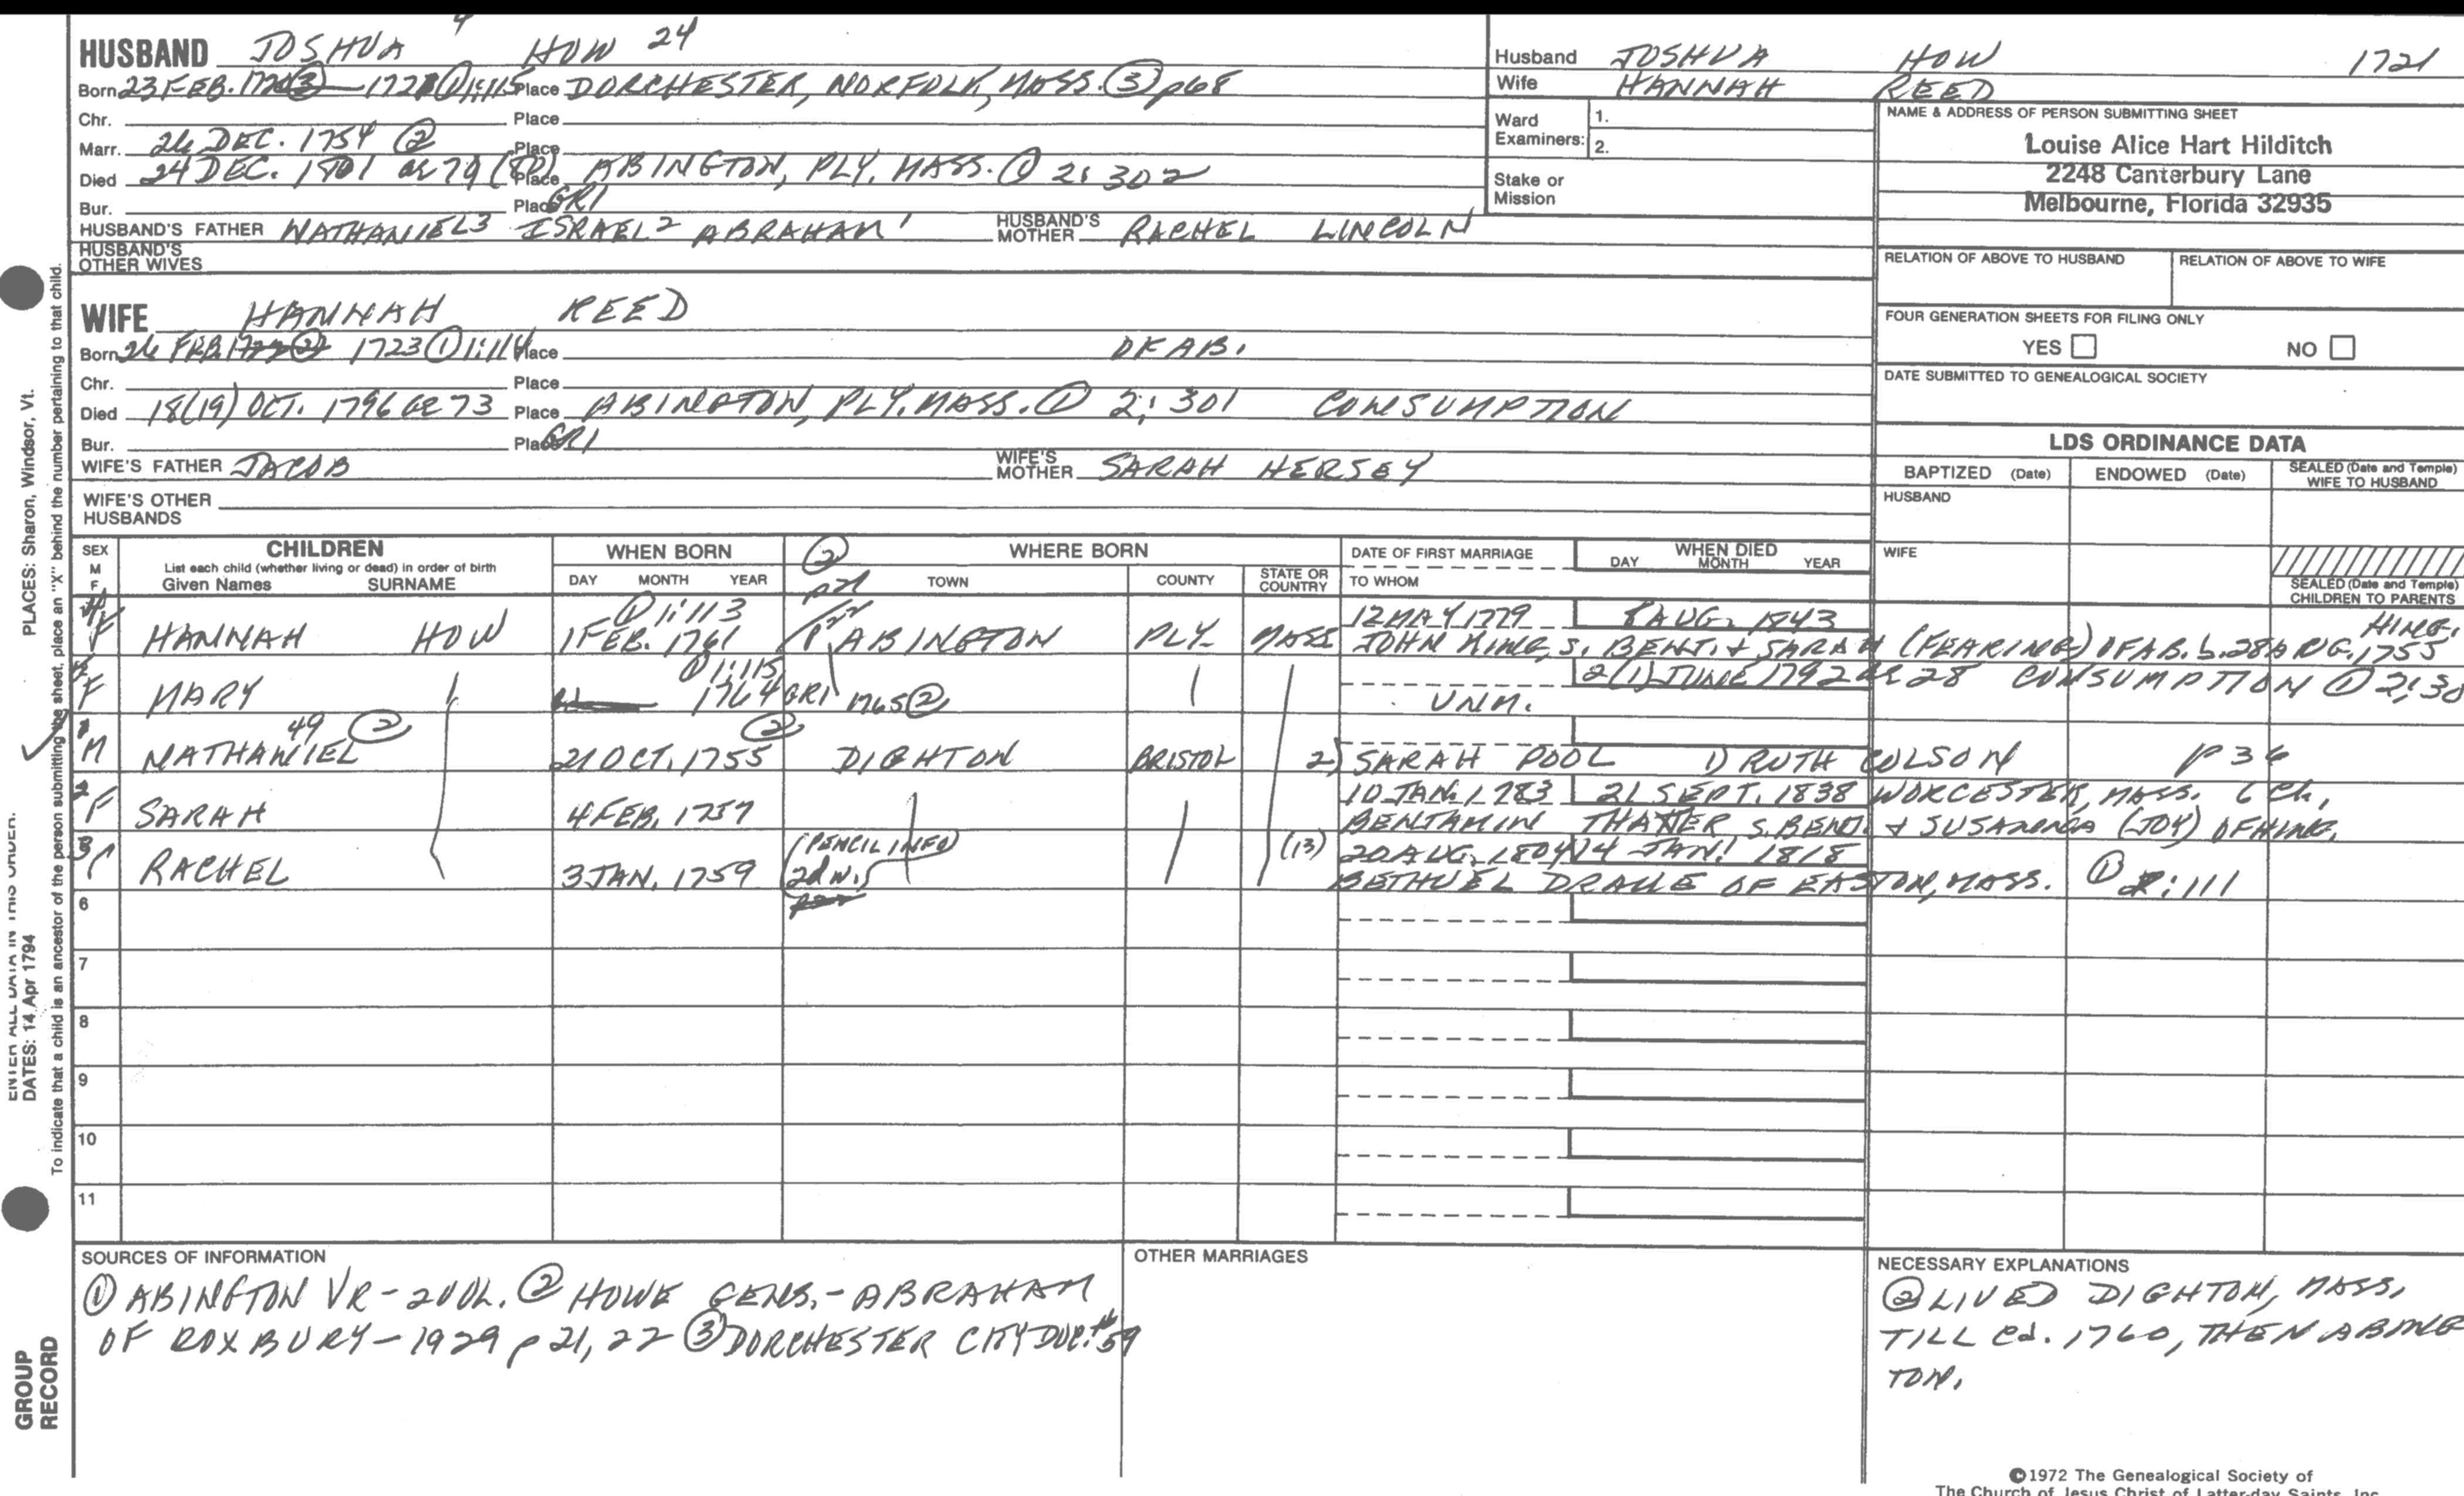 HUSBAND JOSHUA 4 HOW 24
Born 23 FEB. 1721 ① 1:115 Place DORCHESTER, NORFOLK, MASS. ③ p68
Chr. Place
Marr. 26 DEC. 1754 ② Place
Died 24 DEC. 1801 ae 79 (80) Place ABINGTON, PLY. MASS. ① 2:302
Bur. Place GR1
HUSBAND'S FATHER NATHANIEL3 ISRAEL2 ABRAHAM1 HUSBAND'S MOTHER RACHEL LINCOLN
HUSBAND'S OTHER WIVES
WIFE HANNAH REED
Born 26 FEB. 1723 ① 1:114 Place OF AB.
Chr. Place
Died 18(19) OCT. 1796 ae 73 Place ABINGTON, PLY. MASS. ① 2:301 CONSUMPTION
Bur. Place GR1
WIFE'S FATHER JACOB WIFE'S MOTHER SARAH HERSEY
WIFE'S OTHER HUSBANDS
Husband JOSHUA HOW 1721
Wife HANNAH REED
Ward Examiners: 1.
2.
Stake or Mission
NAME & ADDRESS OF PERSON SUBMITTING SHEET
Louise Alice Hart Hilditch
2248 Canterbury Lane
Melbourne, Florida 32935
RELATION OF ABOVE TO HUSBAND RELATION OF ABOVE TO WIFE
FOUR GENERATION SHEETS FOR FILING ONLY
YES NO
DATE SUBMITTED TO GENEALOGICAL SOCIETY
LDS ORDINANCE DATA
BAPTIZED (Date) ENDOWED (Date) SEALED (Date and Temple) WIFE TO HUSBAND
HUSBAND
WIFE
SEALED (Date and Temple) CHILDREN TO PARENTS
SEX M F CHILDREN WHEN BORN ② WHERE BORN DATE OF FIRST MARRIAGE WHEN DIED
List each child (whether living or dead) in order of birth
Given Names SURNAME DAY MONTH YEAR p21 TOWN COUNTY STATE OR COUNTRY TO WHOM DAY MONTH YEAR
① 1:113 p22 12 MAY 1779 8 AUG. 1843 HING.
4 F HANNAH HOW 1 FEB. 1761 ABINGTON PLY. MASS JOHN KING, S. BENJ. & SARAH (FEARING) OF AB. b. 28 AUG. 1755
① 1:115 2(1) JUNE 1792 ae 28 CONSUMPTION ① 2:30
5 F MARY 1764 GR1 1765 ② UNM.
49 ② ②
1 M NATHANIEL 21 OCT. 1755 DIGHTON BRISTOL 2) SARAH POOL 1) RUTH COLSON p36
10 JAN. 1783 21 SEPT. 1838 WORCESTER, MASS. 6 ch.
2 F SARAH 4 FEB. 1757 BENJAMIN THAXTER S. BENJ. & SUSANNA (JOY) OF HING.
(PENCIL INFO) (13) 20 AUG. 1804 14 JAN. 1818
3 F RACHEL 3 JAN. 1759 (2d w.) BETHUEL DRAKE OF EASTON, MASS. ① 2:111
6
7
8
9
10
11
SOURCES OF INFORMATION
① ABINGTON VR - 2 VOL. ② HOWE GENS. - ABRAHAM
OF ROXBURY - 1929 p 21, 22 ③ DORCHESTER CITY DOC. #59
OTHER MARRIAGES
NECESSARY EXPLANATIONS
② LIVED DIGHTON, MASS.
TILL Cd. 1760, THEN ABING
TON.
©1972 The Genealogical Society of
The Church of Jesus Christ of Latter-day Saints, Inc.
PLACES: Sharon, Windsor, Vt.
ENTER ALL DATA IN THIS ORDER:
DATES: 14 Apr 1794
To indicate that a child is an ancestor of the person submitting the sheet, place an "X" behind the number pertaining to that child.
GROUP RECORD